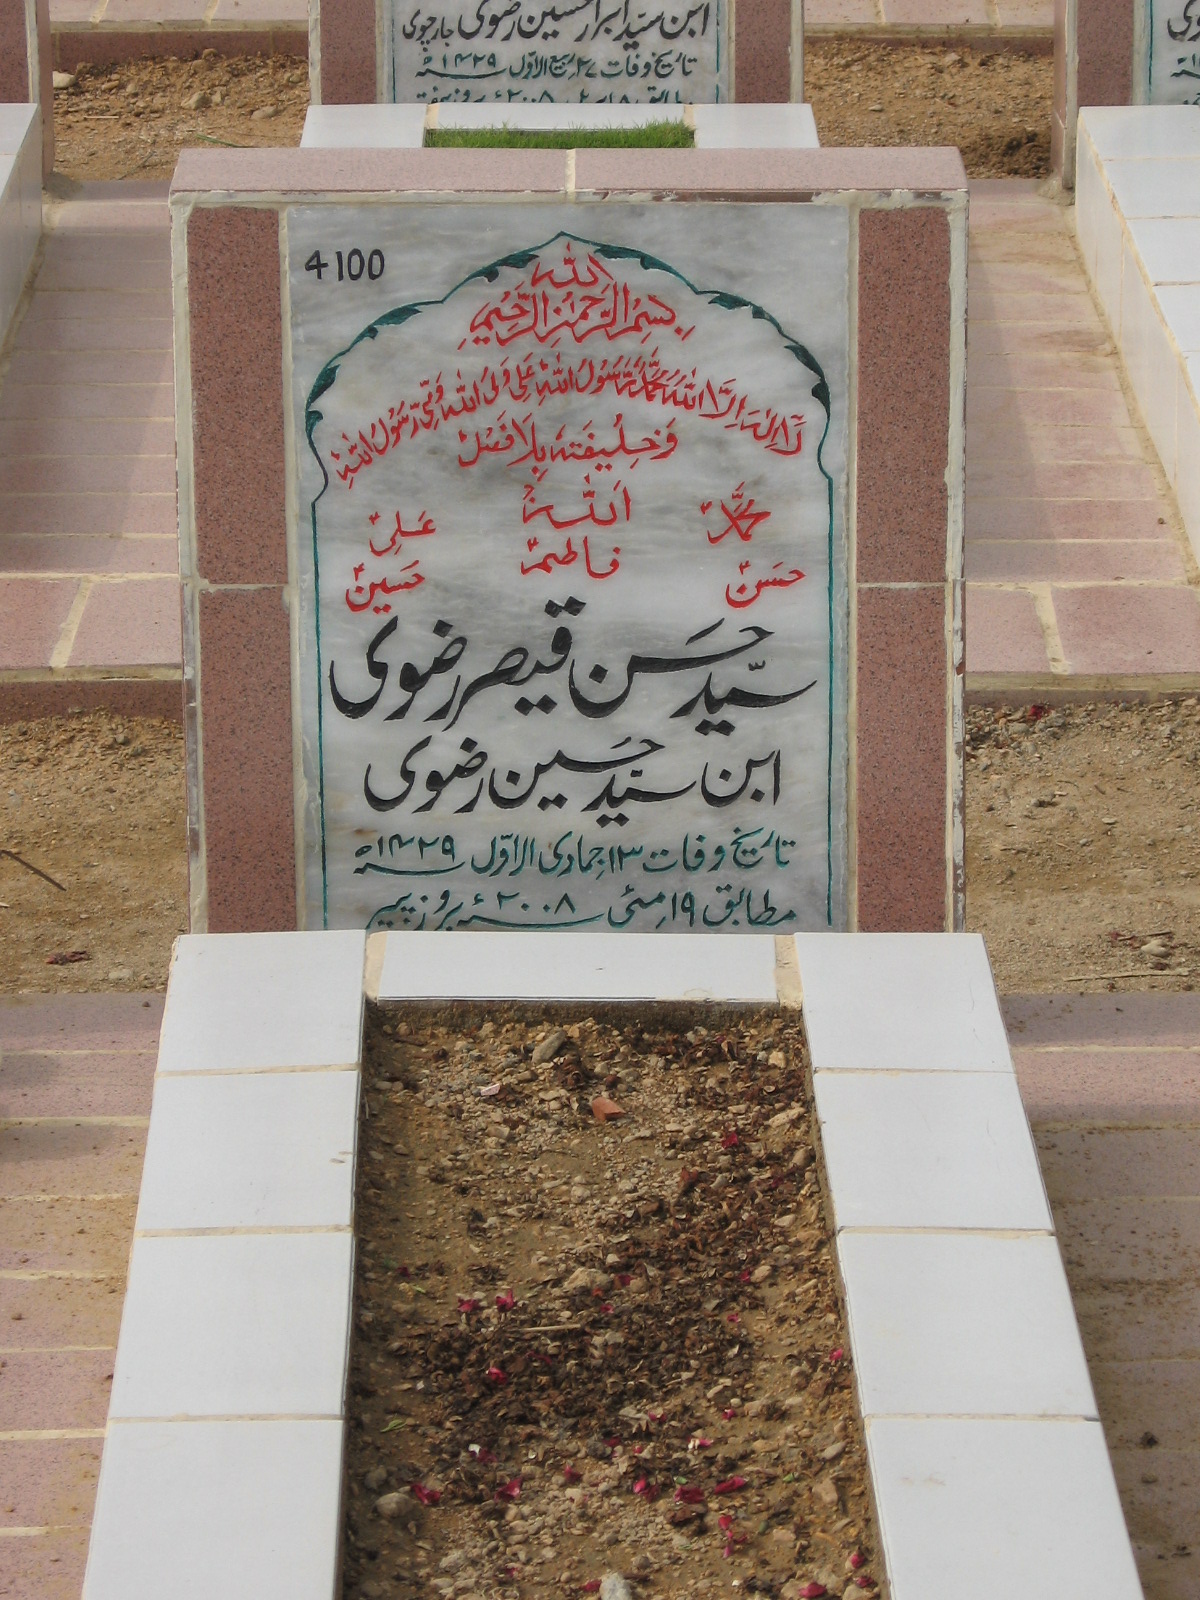 ابن سیّد ابرار حسین رضوی جارچوی
تاریخ وفات ۲۷ ربیع الاوّل ۱۴۲۹ھ
4100
بِسْمِ اللہِ الرَّحْمٰنِ الرَّحِیْمِ
لَا اِلٰہَ اِلَّا اللہُ مُحَمَّدٌ رَّسُوْلُ اللہِ عَلِیٌّ وَلِیُّ اللہِ وَصِیُّ رَسُوْلُ اللہِ
وَخَلِیْفَتُہٗ بِلَا فَصْلٍ
محمّدؐ اَللہُ عَلیؑ
حسنؑ فاطمہؑ حسینؑ
سیّد حسن قیصر رضوی
ابن سیّد حسین رضوی
تاریخ وفات ۱۳ جمادی الاوّل ۱۴۲۹ھ
مطابق ۱۹ مئی ۲۰۰۸ء بروز پیر